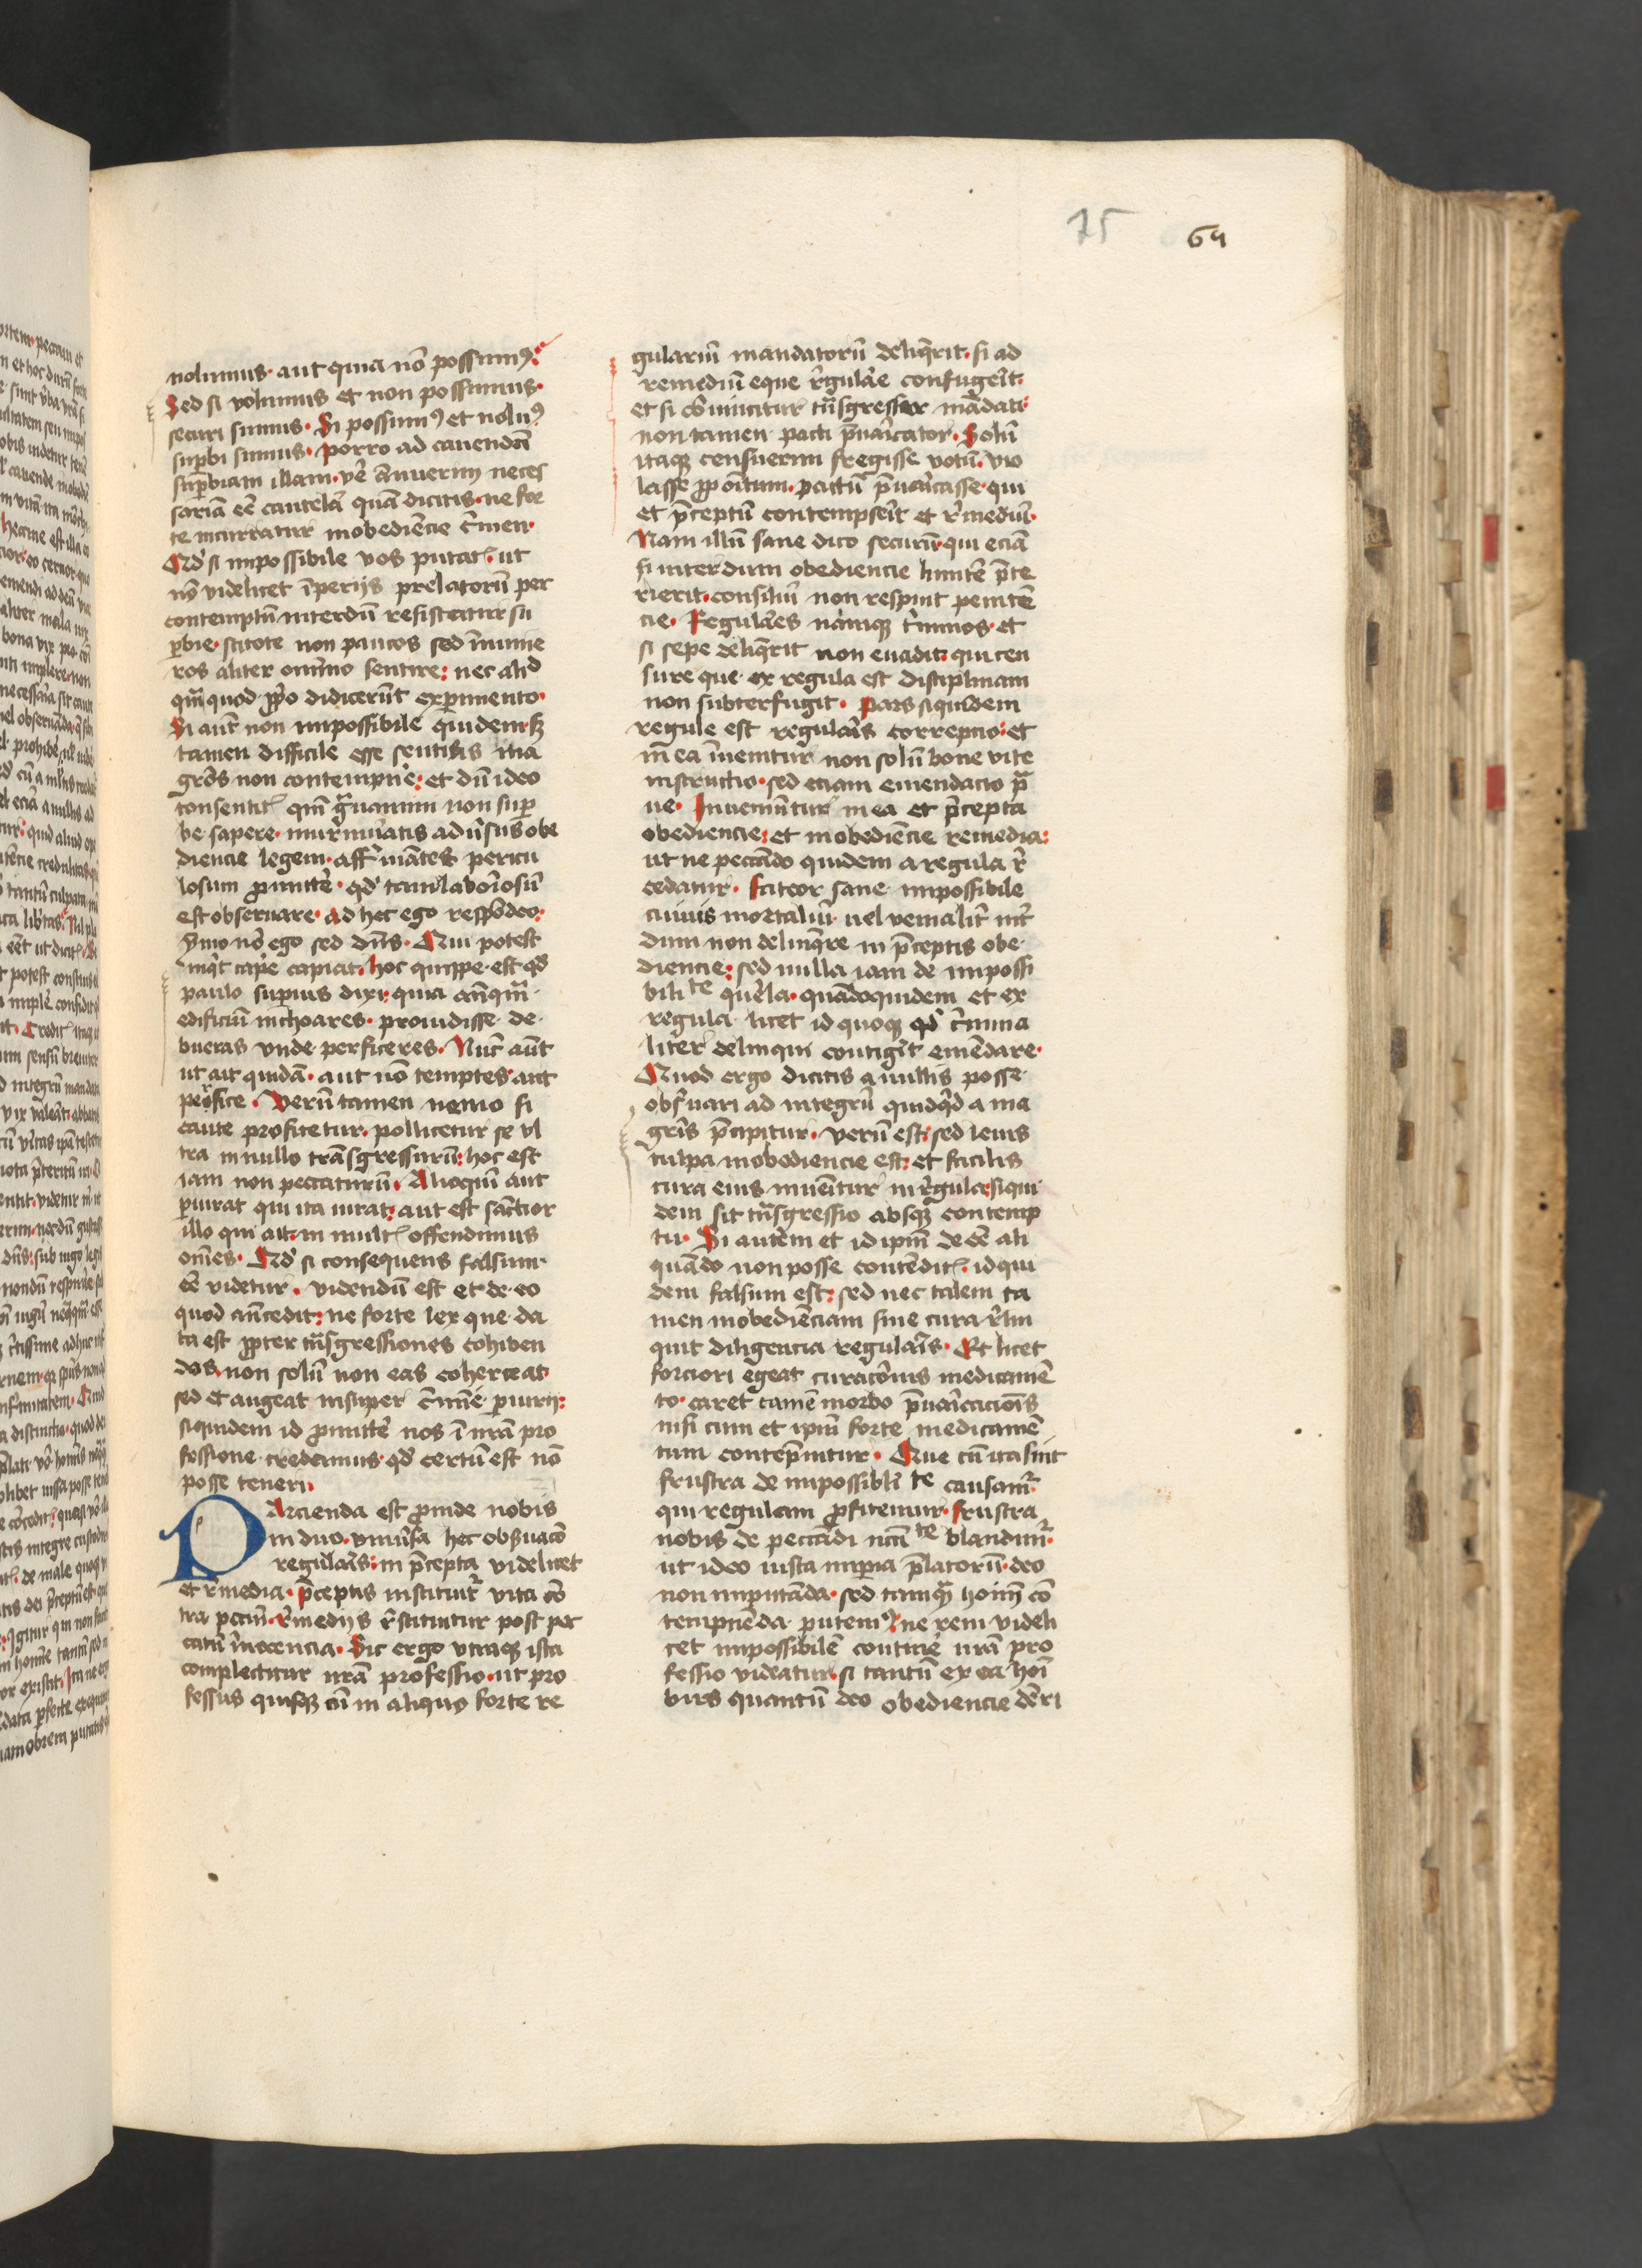 75 64
nolumus · aut quia nō possumꝰ ·
Sed si volumus et non possumus ·
securi sumus · Si possumꝰ et nolumꝰ
suꝑbi sumus · Porro ad cauendā
suꝑbiam illam · neces
sariā eē cautelā quā dicitis · ne for
te incurratur inobediēcie c̄men ·
Qd̓ si impossibile vos putatis · ut
nō videlicet īperijs prelatorū per
contemptū interdū resistatur su
ꝑbie · scitote non paucos sed īnume
ros aliter omīno sentire : nec aliđ
qm̄ quod ꝓprio didicerūt exꝑimento ·
Si aut̄ non impossibile quidem · sꝫ
tamen difficile esse sentitis ma
gr̄is non contempnē : et dū ideo
consentitis qm̄ gͣuamini non suꝑ
be sapere · murmuratis aduersus obe
diencie legem · affirmātes pericu
losum ꝓmittē · qd̓ tam laboriosū
est obseruare · ad hec ego respōdeo :
Ymo nō ego sed dn̄s · Qui potest
inqͥt capē capiat · hoc quippe est qd̓
paulo superius dixi · quia anteqͣm
edificiū inchoares · prouidisse de
bueras vnde perficeres · Nūc aūt
ut ait quidā · aut nō temptes aut
perfice · Verū tamen nemo si
caute profitetur · pollicetur se vl
tra in nullo trāsgressurū : hoc est
iam non peccaturū · Alioquin aut
ꝑiurat qui ita iurat : aut est sanctior
illo qui ait · in multis offendimus
om̄es · Qd̓ si consequens falsum
eē videtur · videndū est et de eo
quod an̄cedit : ne forte lex que da
ta est ꝓpter trāsgressiones cohiben
das · non solū non eas coherceat
sed et augeat insuper c̄mine ꝑiurij :
siquidem id ꝓmittē nos ī nrā pro
fessione credamus · qd̓ certū est nō
posse teneri
PArcienda est ꝓinde nobis
in duo · vniuersa hec obseruacō
regularis : in p̄cepta videlicet
et remedia · p̄ceptis instituitr̄ vita cō
tra pctm̄ · remedijs restituitur post pec
catū īnocencia · Sic ergo vtraqꝫ ista
complectitur nrā professio · ut pro
fessus quisqꝫ cū in aliquo forte re
gulariū mandatorū deliqͥerit · si ad
remediū eque regulare confugerit ·
et si cōuincitur trāsgressor mādati ·
non tamen pacti p̄uaricator · Solū
itaqꝫ censuerim fregisse votū · vio
lasse ꝓpoitum · pactū p̄uaricasse · qui
et p̄ceptū contempserit et remediū ·
Nam illū sane dico securū · qui eciā
si interdum obediencie limitē p̄te
rierit · consiliū non respuit penitē
cie · Regulares nāmqꝫ t̓minos · et
si sepe deliqͥerit non euadit · qui cen
sure que ex regula est disciplinam
non subterfugit · Pars siquidem
regule est regularis correpcio : et
in ea inuenitur non solū bone vite
instructio · sed eciam emendacio pͣ
ue · Inueniūtur in ea et p̄cepta
obediencie : et inobediēcie remedia :
ut ne peccādo quidem a regula re
cedatur · fateor sane impossibile
cuiuis mortaliū · uel venialiter int̓
dum non delinqͥere in p̄ceptis obe
diencie : sed nulla iam de impossi
bilitᵗᵉ querela · quādoquidem et ex
regula licet id quoqꝫ qd̓ c̄mina
liter delinqui contigerit emēdare ·
Quod ergo dicitis a nullis posse
obseruari ad integrū quidqͥd a ma
gr̄is p̄cipitur · verū est : sed leuis
culpa inobediencie est : et facilis
cura eius inuenitur in regula : siqui
dem sit trāsgressio absqꝫ contemp
tu · Si autem et id ipm̄ de eē ali
quādo non posse contēditis · id qui
dem falsum est : sed nec talem ta
men inobediēciam sine cura relin
quit diligencia regularis · Et licet
forciori egeat curacōnis medicamē
to · caret tamē morbo p̄uaricacionis
nisi cum et ipm̄ forte medicamē
tum contēpnitur · Que cū ita sint
frustra de impossibliᵗᵉ causamr̄
qui regulam ꝓfitemur · frustra
nobis de peccādi nccīᵗᵉ blandimr̄
ut ideo iusta imꝑia p̄latorū · deo
non imputāda · sed tamqͣm hoim̄ cō
tempnēda putemꝰ · ne rem videli
cet impossibilē continē nrā pro
fessio videatur · si tantū ex ea hoī
bus quantū deo obediencie deri